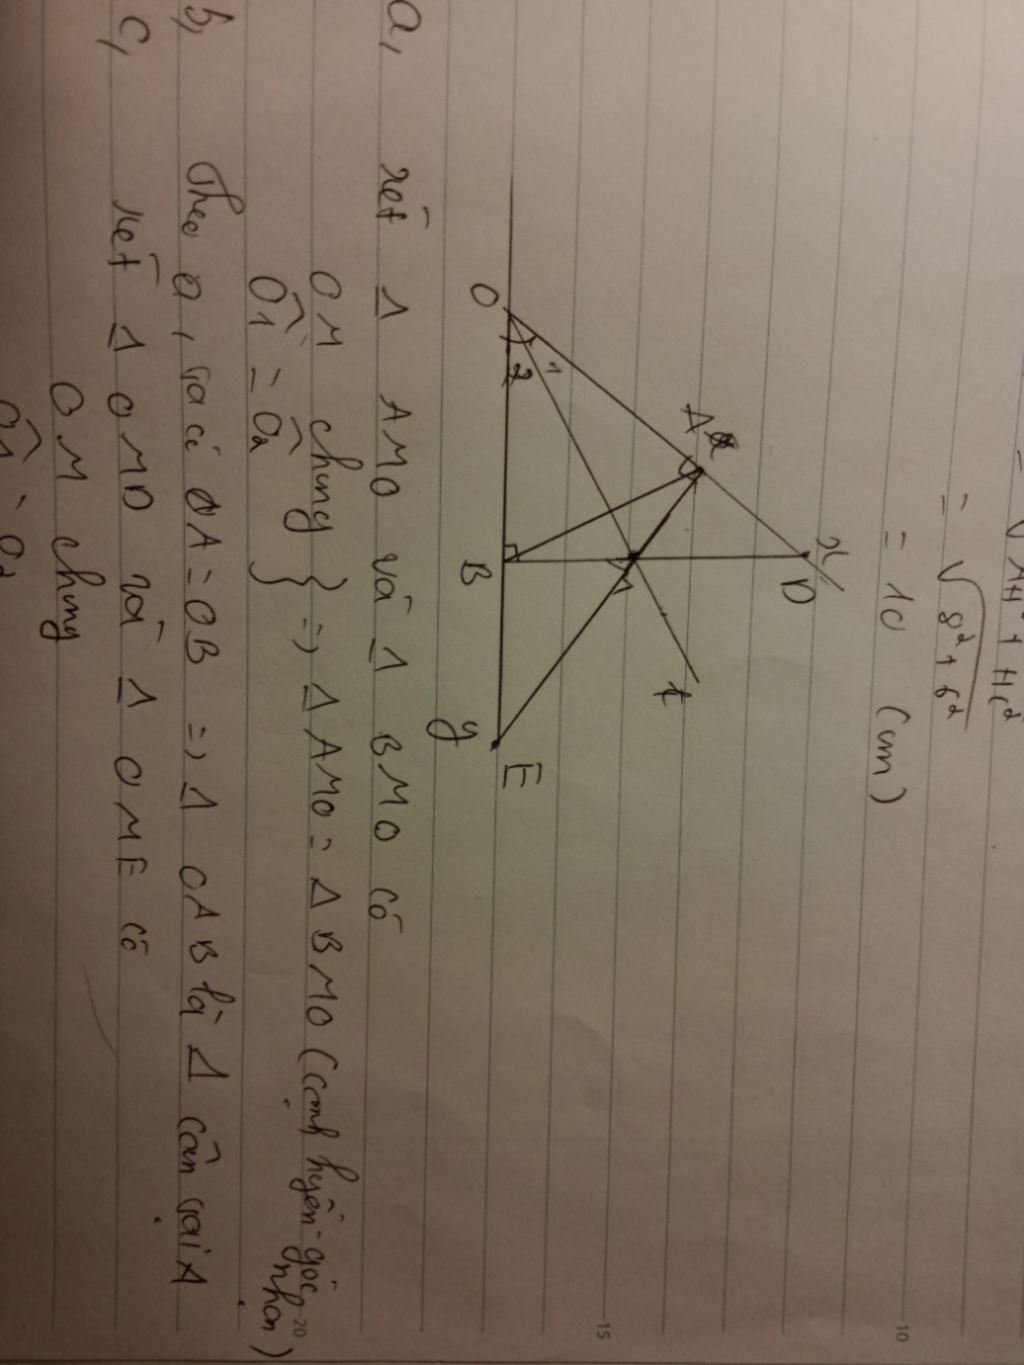 = √AH² + HC²
= √8² + 6²
= 10 (cm)
x
D
A
1
2
O
t
B
y
E
a, xét Δ AMO và Δ BMO có
OM chung
Ô1 = Ô2 } => Δ AMO = Δ BMO (cạnh huyền - góc nhọn)
b, Theo a, ta có OA = OB => Δ OAB là Δ cân tại A
c, xét Δ OMD và Δ OME có
OM chung
Ô1 = Ô2
10
15
20